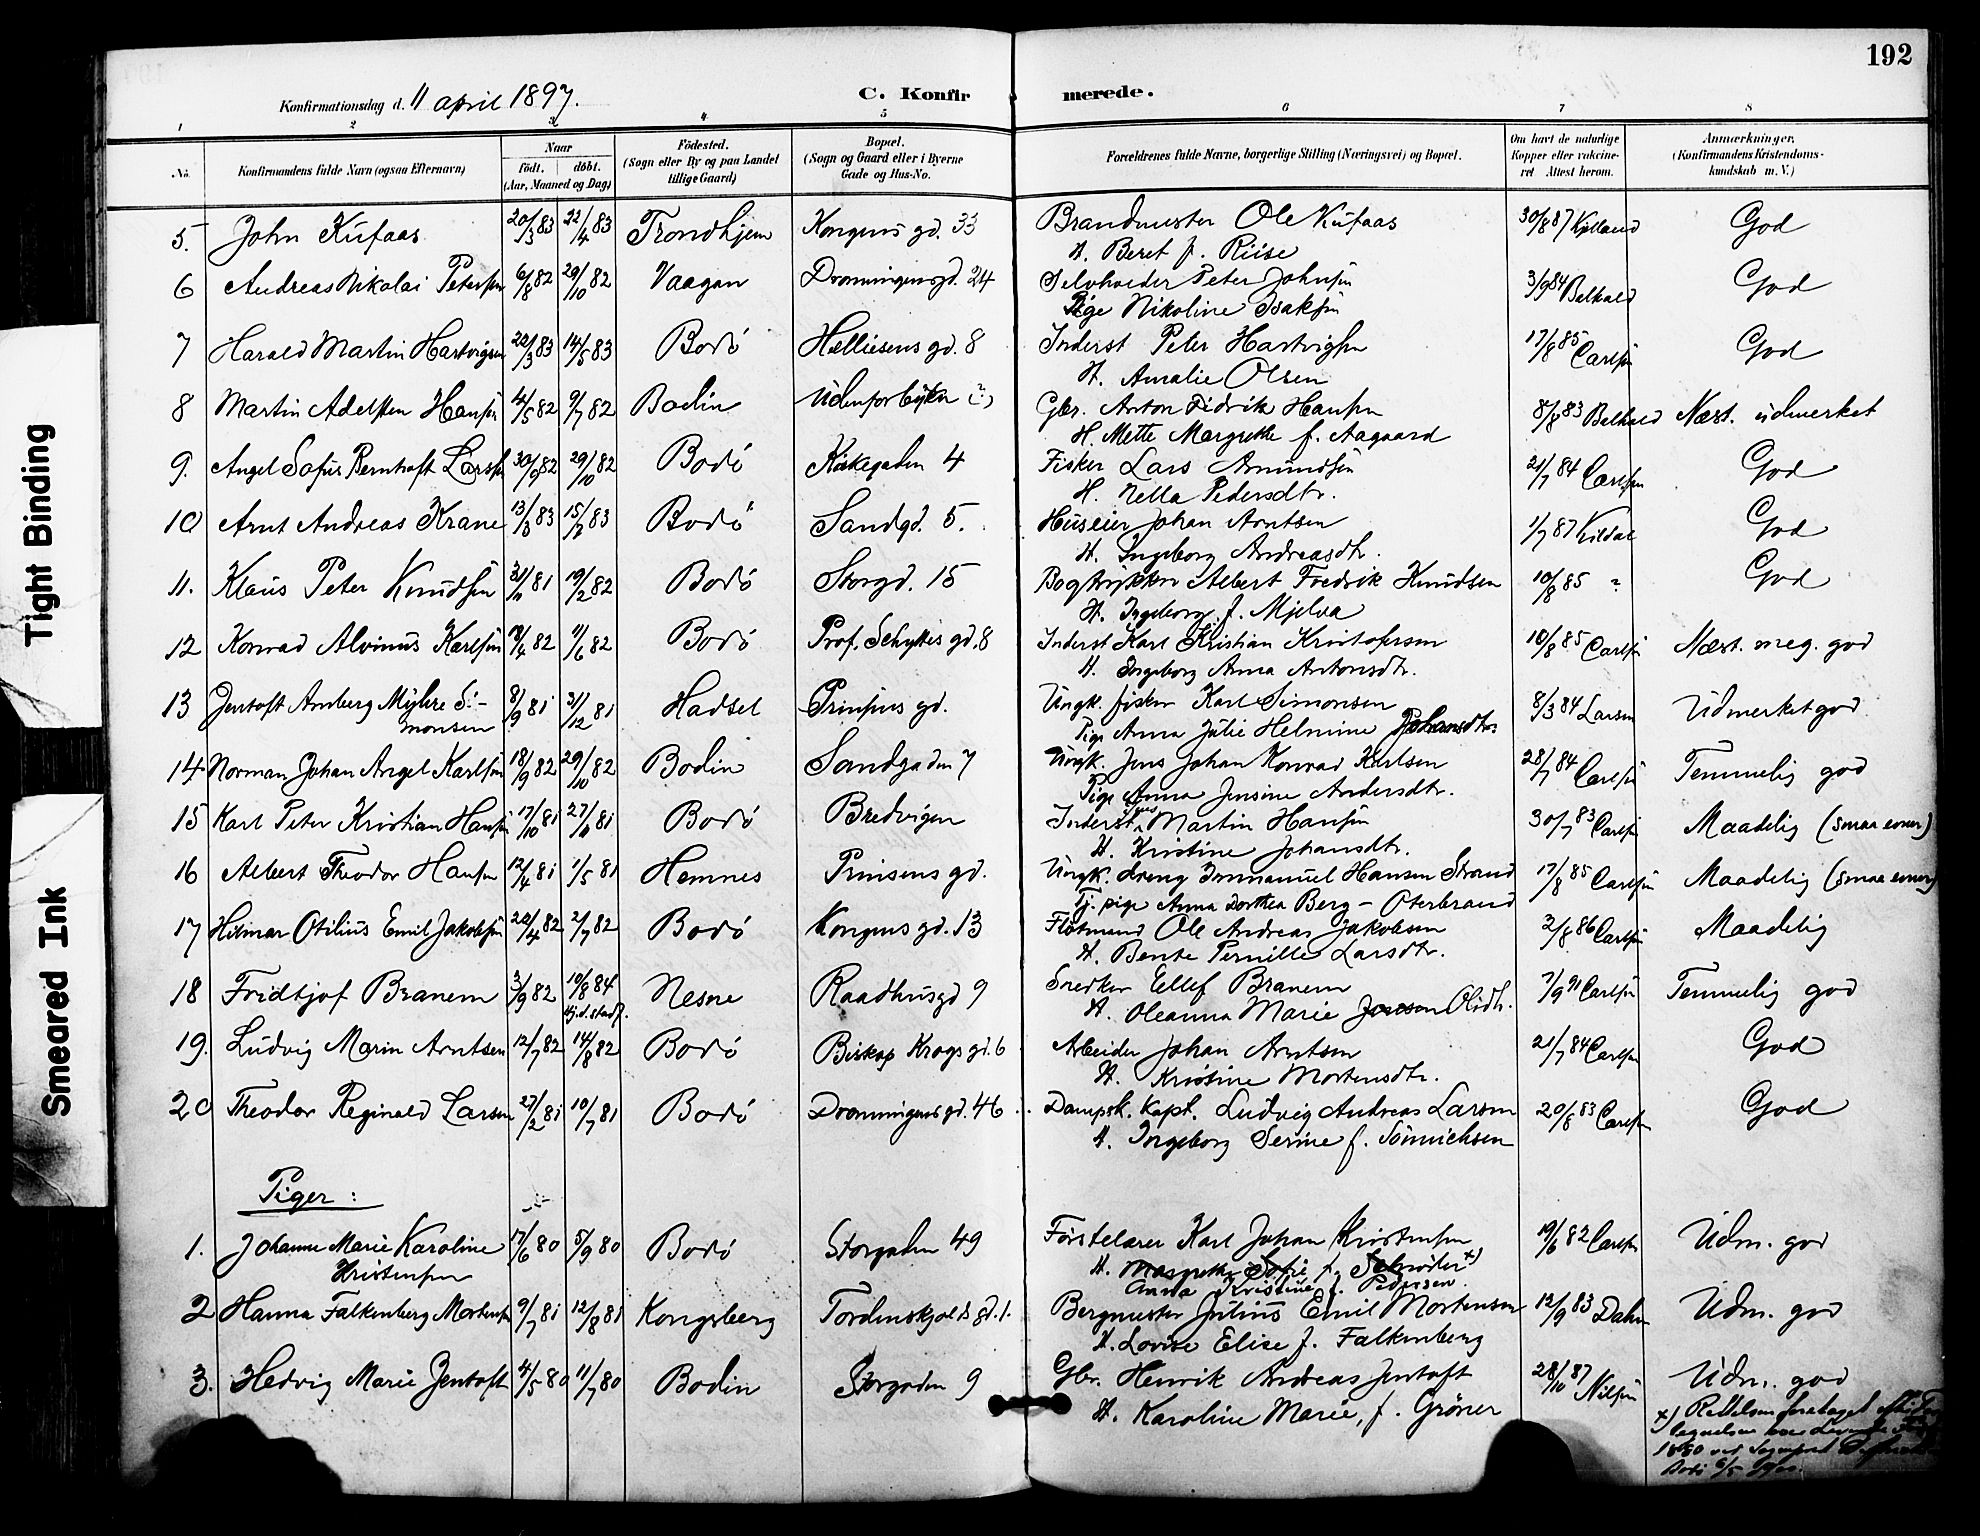 192
Konfirmationsdag d. 11 april 1897.
C. Konfirmerede.
1 2 3 4 5 6 7 8
No.
Konfirmandens fulde Navn (ogsaa Efternavn)
Naar
født. døbt.
(Aar, Maaned og Dag)
Fødested.
(Sogn eller By og paa Landet
tillige Gaard)
Bopæl.
(Sogn og Gaard eller i Byerne
Gade og Hus-No.
Forældrenes fulde Navne, borgerlige Stilling (Næringsvei) og Bopæl.
Om havt de naturlige
Kopper eller vakcine-
ret Attest herom.
Anmærkninger.
(Konfirmandens Kristendoms-
kundskab m. V.)
5. John Kufaas 20/3 83 22/4 83 Trondhjem Kongens gd. 33 Brandmester Ole Kufaas 30/8 87 God
H. Beret f. Riise
6 Andreas Nikolai Petersen 6/8 82 29/10 82 Vaagan Dronningensgd. 24 Selvhoeder Peter Johnsen 3/9 84 God
Pige Nikoline Isaksen
7 Harald Martin Hartvigsen 22/3 83 14/5 83 Bodø Helliesens gd. 8 Inderst Peter Hartvigsen 17/8 85 Carlsen God
H. Amalie Olsen
8 Martin Adelsten Hansen 4/5 82 9/7 82 Bodin Udenfor byen (?) Gbr. Anton Fidrik Hansen 8/8 83 Næst. udmerket
H. Mette Margrethe f. Aagaard
9. Angel Sofus Berntoft Larsen 30/9 82 29/10 82 Bodø Kirkegaden 4 Fisker Lars Amundsen 21/7 84 Carlsen God
H. Nella Pedersdtr.
10 Arnt Andreas Krane 13/3 83 15/7 83 Bodø Sandgd. 5. Huseier Johan Arntsen 1/7 87 Kildal God
H. Ingeborg Andreasdtr.
11. Klaus Peter Knudsen 21/11 81 19/2 82 Bodø Storgd. 15 Bogtrykker Albert Fredrik Knudsen 10/8 85 ? God
H. Ingeborg f. Mjelva
12 Konrad Alvinus Karlsen 19/4 82 11/6 82 Bodø Prof. Schyttes gd. 8 Inderst Karl Kristian Kristofersen 10/8 85 Carlsen Næst. meg. god
H. Ingeborg Anna Antonsdtr.
13 Jentoft Arnberg Myhre Si- 8/9 81 31/12 81 Hadsel Prinsens gd. Ungk. fisker Karl Simonsen 8/3 84 Larsen Udmerket god
monsen Pige Anna Julie Helmine Johansdtr.
14 Norman Johan Angel Karlsen 18/9 82 29/10 82 Bodin Sandgaden 7 Ungk. Jens Johan Konrad Karlsen 28/7 84 Carlsen Temmelig god
Pige Anna Jensine Andersdtr.
15 Karl Peter Kristian Hansen 17/10 81 27/11 81 Bodø Bredvigen Inderst Martin Hansen 30/7 83 Carlsen Maadelig (smaa evner)
H. Kristine Johansdtr.
16 Albert Theodor Hansen 12/4 81 1/5 81 Hemnes Prinsens gd. Ungk. dreng Immanuel Hansen Strand 17/8 85 Carlsen Maadelig (smaa evner)
Tj. pige Anna Dorthea Berg - Oterbrand
17 Hilmar Otilius Emil Jakobsen 20/4 82 2/7 82 Bodø Kongens gd. 13 Fløtmand Ole Andreas Jakobsen 2/8 86 Carlsen Maadelig
H. Bente Pernille Larsdtr.
18 Fridtjof Branem 3/9 82 10/8 84 Nesne Raadhusgd 9 Snedker Ellef Branem 7/9 91 Carlsen Temmelig god
Hj.d. stadf. H. Oleanna Marie Jonson Olsdtr.
19. Ludvig Marin Arntsen 12/7 82 14/8 82 Bodø Biskop Krogs gd. 6 Arbeider Johan Arntsen 21/7 84 Carlsen God
H. Kristine Mortensdtr.
20 Theodor Reginald Larsen 27/2 81 10/7 81 Bodø Dronningens gd. 46 Dampsk. Kapt. Ludvig Andreas Larsen 20/8 83 Carlsen God
H. Ingeborg Serine f. Sönnichsen
Piger:
1. Johanne Marie Karoline 17/6 80 5/9 80 Bodø Storgaden 49 Førstelærer Karl Johan Kristensen 19/6 82 Carlsen Udm. god
Kristensen H. Margrethe Sofie f. Schrøder x)
Anna Kristine f. Pedersen.
2 Hanna Falkenberg Mortensen 9/7 81 12/8 81 Kongsberg Tordenskjolds gd. 1. Bergmester Julius Emil Mortensen 12/9 83 Dahm Udm. god
H. Lovise Elise f. Falkenberg
3. Hedvig Marie Jentoft 4/5 80 11/7 80 Bodin Storgaden 9 Gbr. Henrik Andreas Jentoft 28/10 87 Nilsen Udm. god
H. Karoline Marie, f. Gröner
x) Rettelsen foretaget
Tight Binding
Smeared Ink